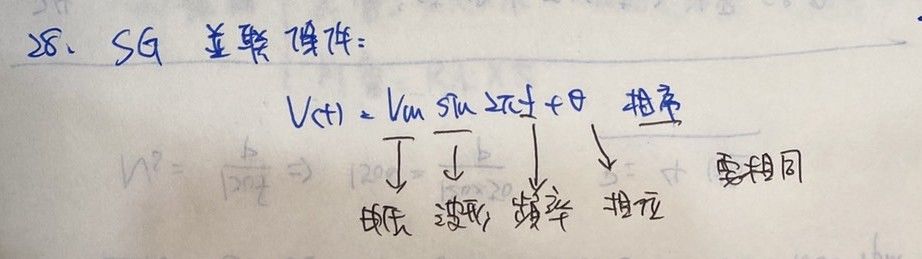 28、 SG 並聯條件:
V(t) = Vm sin 2πf + θ 相序
電壓 波形 頻率 相位 要相同